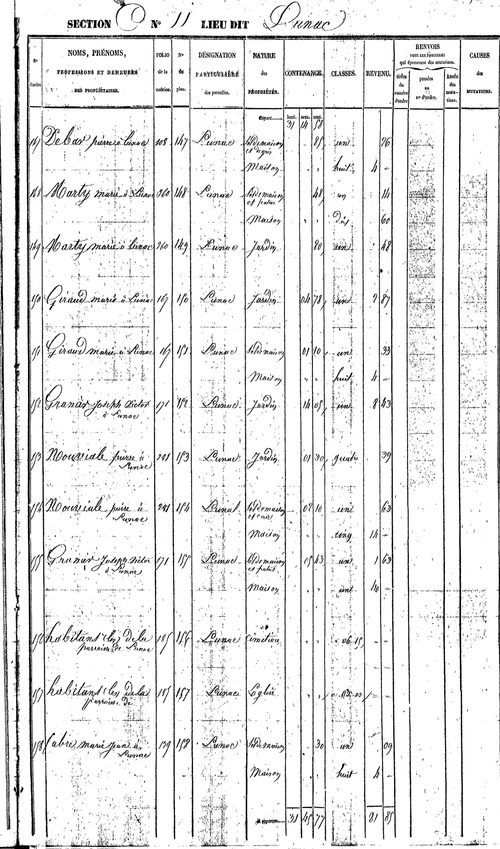 SECTION C N° 11 LIEU DIT Lunac
N° d'ordre. NOMS, PRÉNOMS, PROFESSIONS ET DEMEURES DES PROPRIÉTAIRES. FOLIO de la matrice. N° du plan. DÉSIGNATION PARTICULIÈRE des parcelles. NATURE des PROPRIÉTÉS. CONTENANCE. CLASSES. REVENU. RENVOIS CAUSES des MUTATIONS.
hect. ares. cent.
Report 31 14
147 Debar pierre à Lunac 108 147 Lunac Sol de maison 85 un 76
Maison huit 4 –
148 Marty marie à Lunac 260 148 Lunac Sol de maison et patus 48 un 14
Maison dix 60
149 Marty marie à Lunac 260 149 Lunac Jardin 80 un 48
150 Giraud marie à Lunac 167 150 Lunac Jardin 04 78 un 2 87
151 Giraud marie à Lunac 167 151 Lunac Sol de maison 01 10 un 33
Maison huit 4 –
152 Granier Joseph Victor à Lunac 171 152 Lunac Jardin 14 05 un 8 43
153 Nouviale pierre à Lunac 281 153 Lunac Jardin 01 30 quatre 39
154 Nouviale pierre à Lunac 281 154 Lunac Sol de maison 02 10 un 63
Maison cinq 14 –
155 Granier Joseph Victor à Lunac 171 155 Lunac Sol de maison et patus 05 43 un 1 63
Maison un 40 –
156 habitants (les) de la paroisse de Lunac 185 156 Lunac Cimetière
157 habitants (les) de la paroisse de 185 157 Lunac Église
158 Fabre marie jeanne à Lunac 129 158 Lunac Sol de maison 30 un 09
Maison huit 4 –
31 45 77 21 85